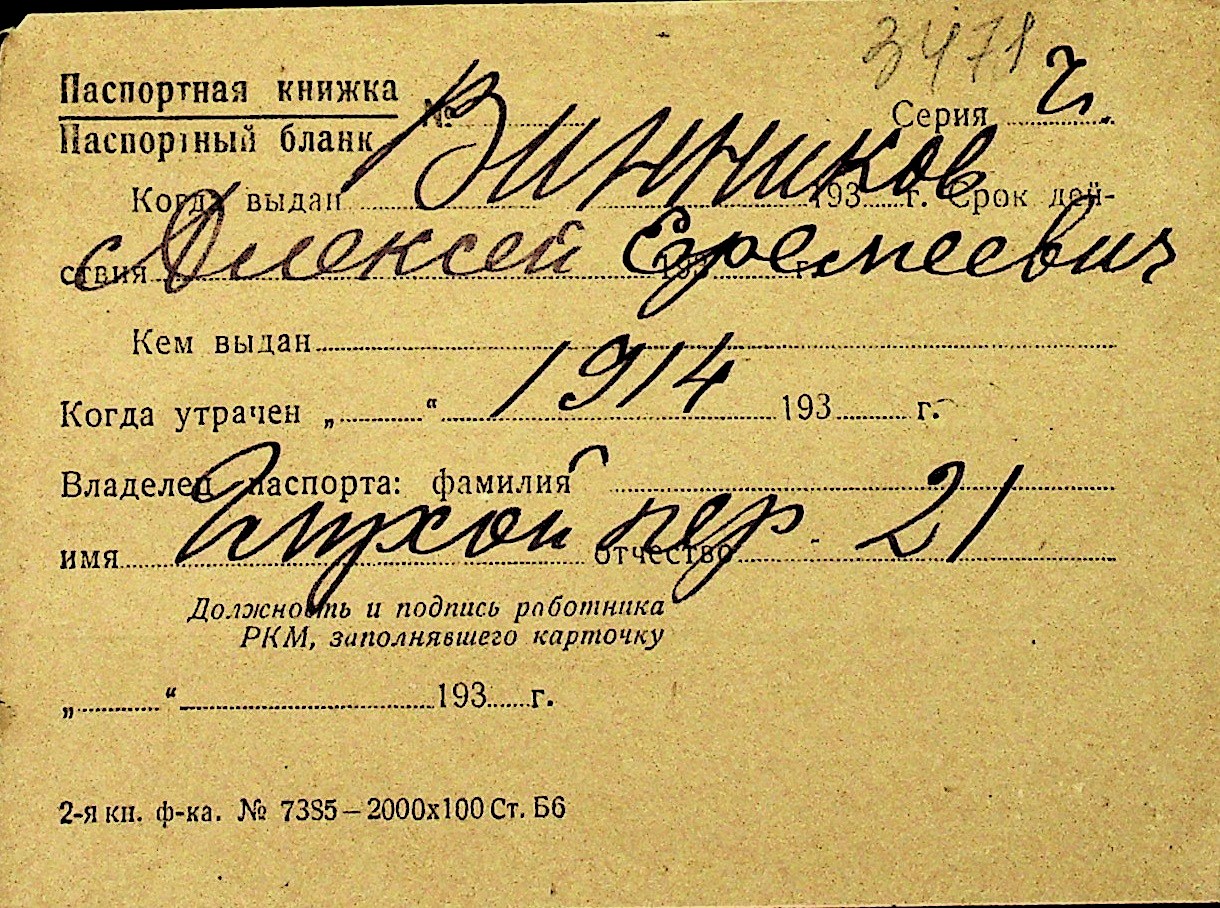 3471
Паспортная книжка
Паспортный бланк № Серия ч.
Винников
Когда выдан 193 г. Срок дей-
ствия 193 г.
Алексей Еремеевич
Кем выдан
1914
Когда утрачен „ “ 193 г.
Владелец паспорта: фамилия
Глухой пер. 21
имя отчество
Должность и подпись работника
РКМ, заполнявшего карточку
„ “ 193 г.
2-я кн. ф-ка. № 7385—2000х100 Ст. Б6